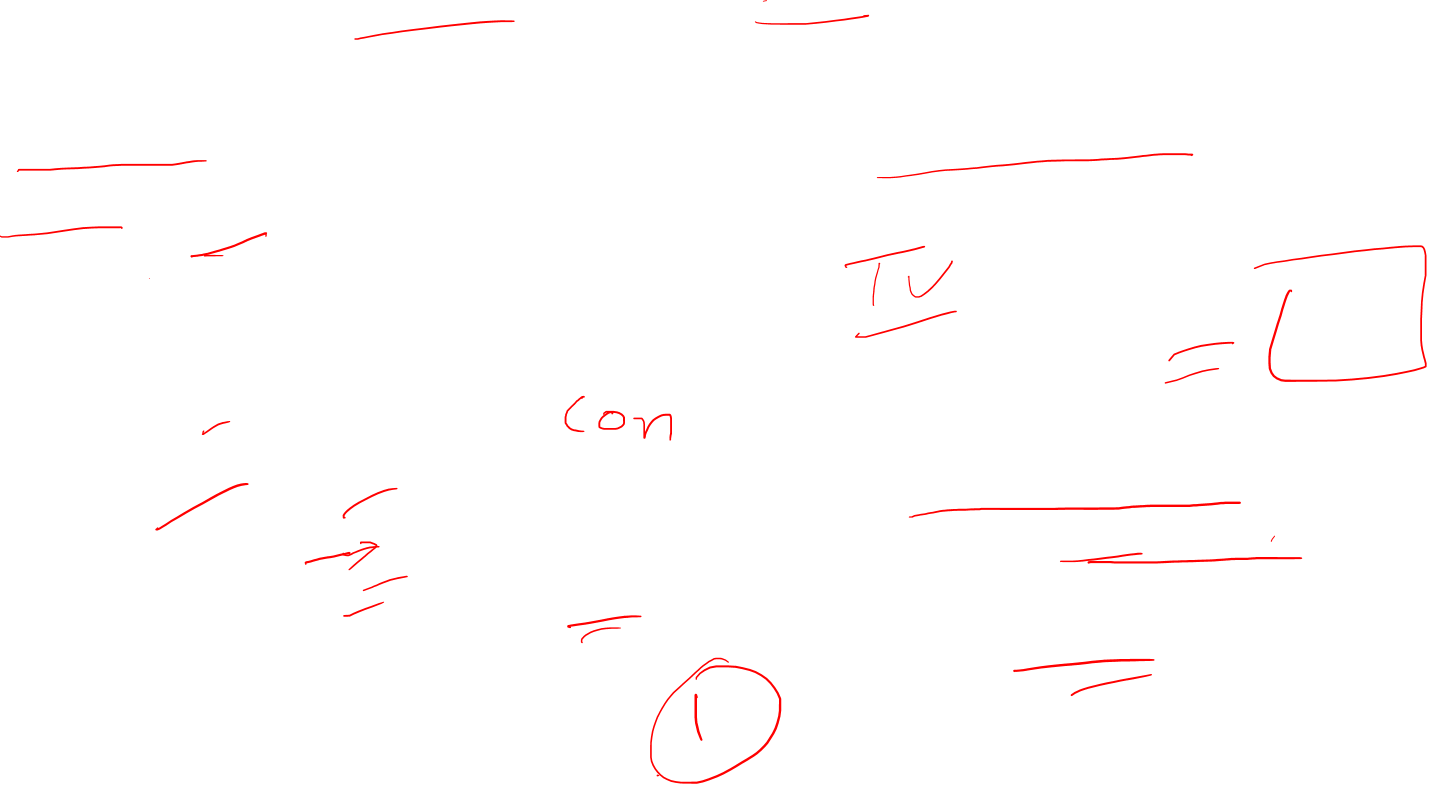 TV
Con
1